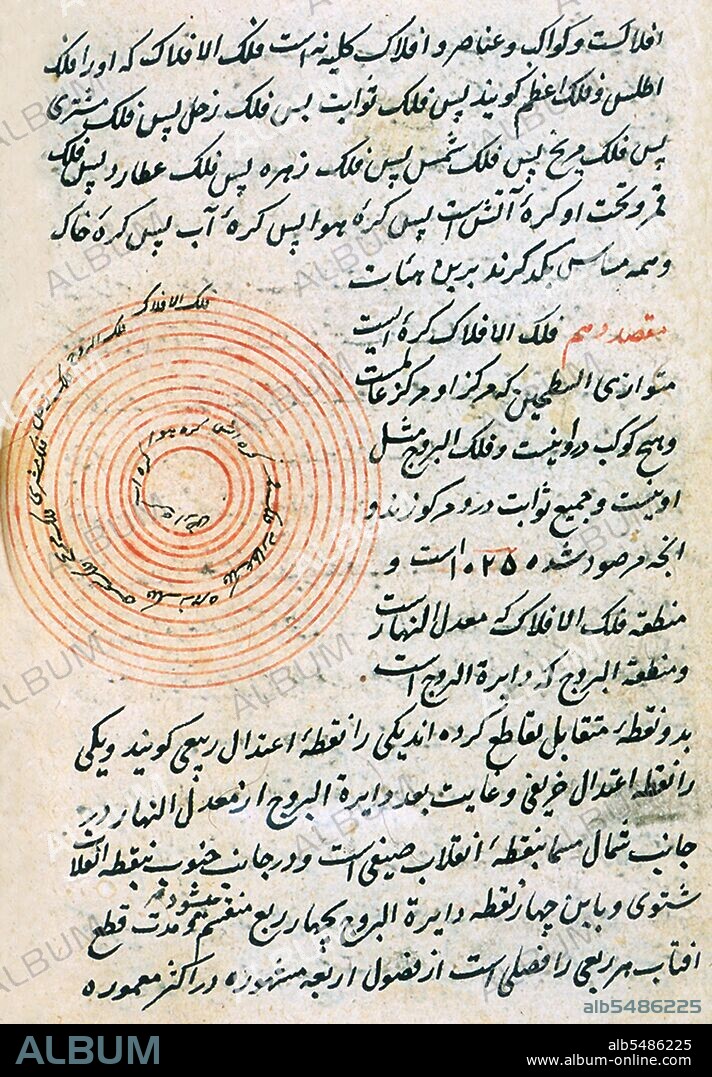 افلاکست و کواکب و عناصر و افلاک کلیه نه است فلک الافلاک که او را فلک
اطلس و فلک اعظم کویند پس فلک ثوابت پس فلک زحل پس فلک مشتری
پس فلک مریخ پس فلک شمس پس فلک زهره پس فلک عطارد پس فلک
قمر و تحت او کرهٔ آتش است پس کرهٔ هوا پس کرهٔ آب پس کرهٔ خاک
و همه مماس یکدکرند برین هیئات
فلک الافلاک
فلک البروج
فلک زحل
فلک مشتری
فلک مریخ
فلک شمس
فلک زهره
فلک عطارد
فلک قمر
کره آتش
کره هوا
کره آب
مقصد دهم فلک الافلاک کرهٔ ایست
متوازی السطحین که مرکز او مرکز عالمست
و هیچ کوکب درو نیست و فلک البروج مثل
اوینست و جمیع ثوابت درو مرکوزند و
انچه مرصود شده ۱۰۲۵ است و
منطقه فلک الافلاک که معدل النهار است
و منطقة البروج که دایرة البروج است
بدو نقطهٔ متقابل تقاطع کرده اند یکی را نقطهٔ اعتدال ربیعی کویند و یکی
را نقطه اعتدال خریفی و غایت بعد دایرة البروج از معدل النهار در
جانب شمال مسما بنقطهٔ انقلاب صیفی است و در جانب جنوب بنقطه انقلاب
شتوی و باین چهار نقطه دایرة البروج بچهار ربع منقسم میشود و مدت قطع
افتاب هر ربعی را فصلی است از فصول اربعه مشهوره در اکثر معموره
ALBUM
alb5486225
ALBUM
alb5486225
www.album-online.com